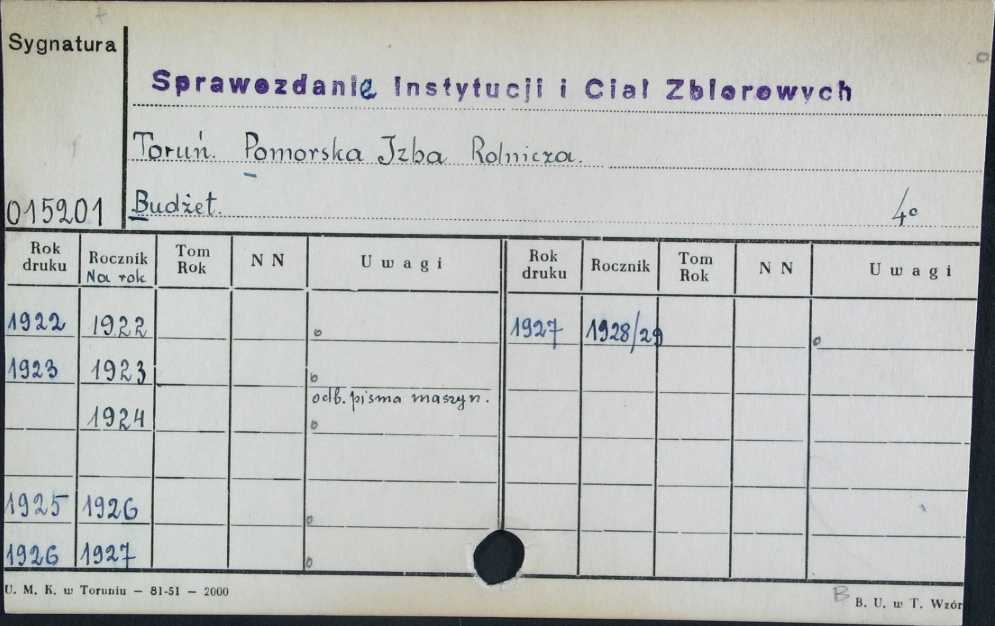 Sygnatura
Sprawozdanie Instytucji i Ciał Zbiorowych
Toruń. Pomorska Izba Rolnicza.
015201 Budżet. 4°
Rok druku Rocznik Na rok Tom Rok N N U w a g i Rok druku Rocznik Tom Rok N N U w a g i
1922 1922 o 1927 1928/29 o
1923 1923 o
odb. pisma maszyn.
1924 o
1925 1926 o
1926 1927 o
U. M. K. w Toruniu — 81-51 — 2000
B B. U. w T. Wzór